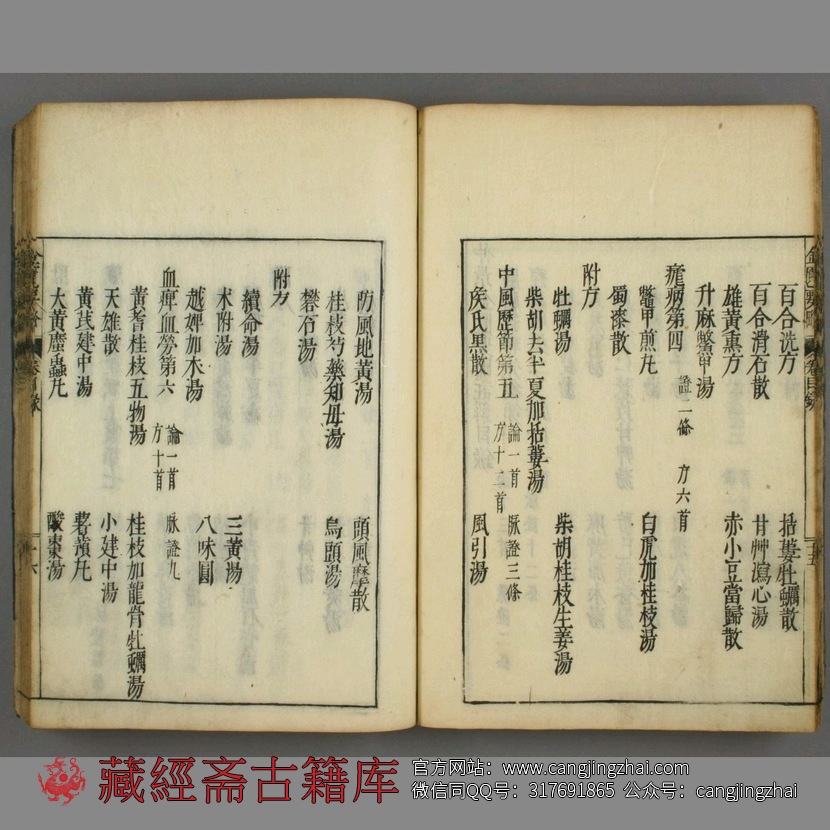 百合洗方　栝蔞牡蠣散
百合滑石散　甘艸瀉心湯
雄黃熏方　赤小豆當歸散
升麻鱉甲湯
瘧病第四　證二條　方六首
鱉甲煎丸　白虎加桂枝湯
蜀漆散
附方
牡蠣湯　柴胡桂枝生姜湯
柴胡去半夏加栝蔞湯
中風歷節第五　論一首　脉證三條　方十二首
侯氏黑散　風引湯
防風地黃湯　頭風摩散
桂枝芍藥知母湯　烏頭湯
礬石湯
附方
續命湯　三黃湯
术附湯　八味圓
越婢加术湯
血痺血勞第六　論一首　脉證九　方十首
黃耆桂枝五物湯　桂枝加龍骨牡蠣湯
天雄散　小建中湯
黃芪建中湯　薯蕷丸
大黃䗪蟲丸　酸棗湯
藏經斋古籍库
官方网站：www.cangjingzhai.com
微信同QQ号：317691865 公众号：cangjingzhai